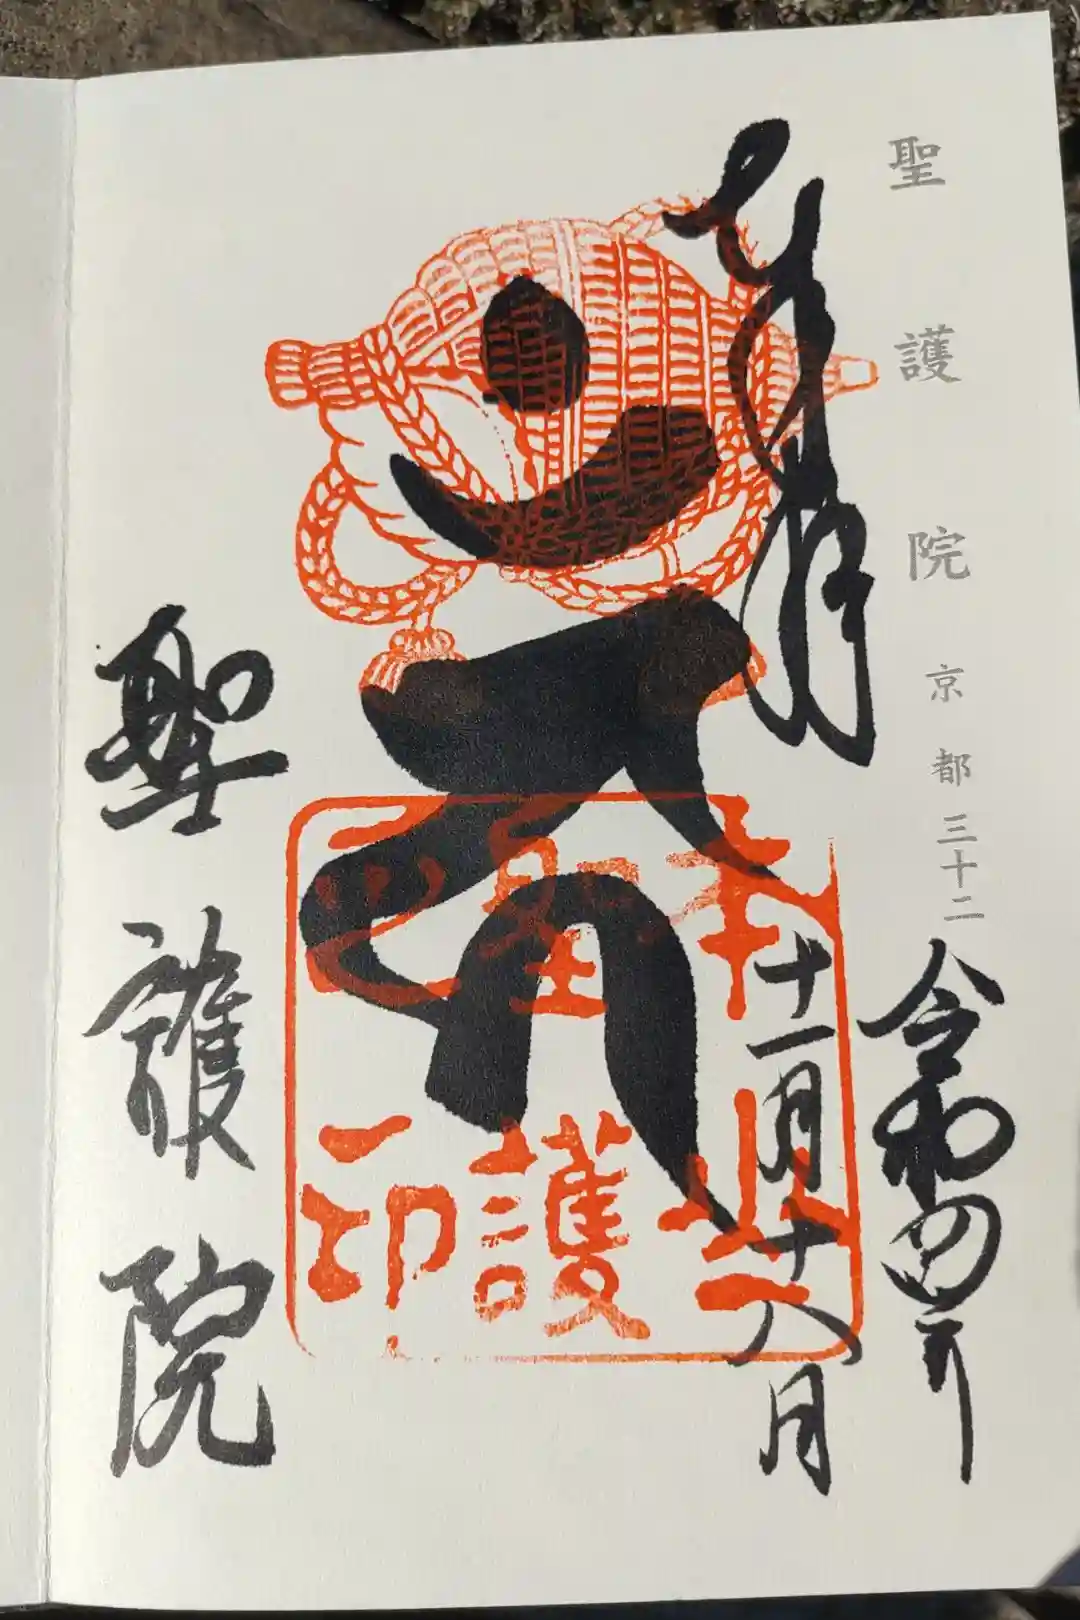 聖護院 京都三十二
令和四年
奉拝
十一月十八日
本山
聖護
之印
聖護院